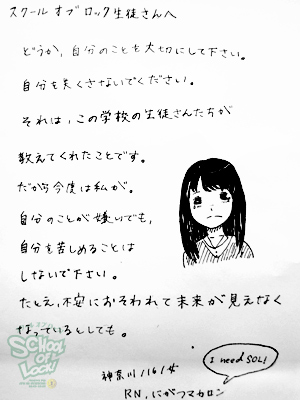 スクール オブ ロック生徒さんへ
どうか、自分のことを大切にして下さい。
自分を失くさないでください。
それは、この学校の生徒さんたちが
教えてくれたことです。
だから今度は私が。
自分のことが嫌いでも、
自分を苦しめることは
しないで下さい。
たとえ、不安におそわれて未来が見えなく
なっているとしても。
SCHOOL OF LOCK!
I need SOL!
神奈川/16/女
RN、にがつマカロン